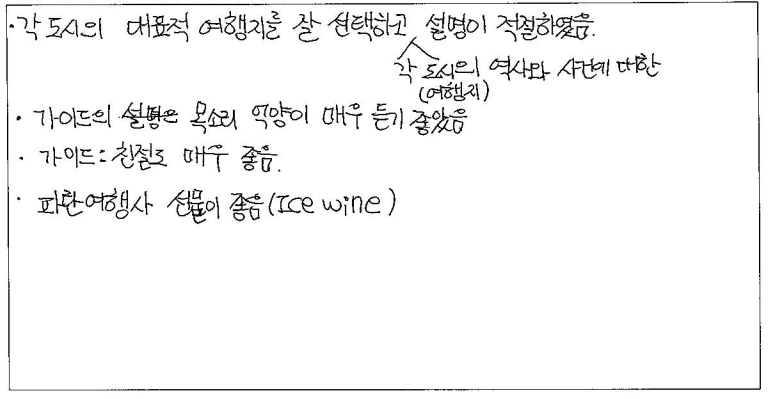 · 각 도시의 대표적 여행지를 잘 선택하고 설명이 적절하였음.
각 도시의 역사와 사건에 대한
(여행지)
· 가이드의 설명은 목소리 억양이 매우 듣기 좋았음
· 가이드: 친절도 매우 좋음.
· 파란여행사 선물이 좋음(Ice wine)